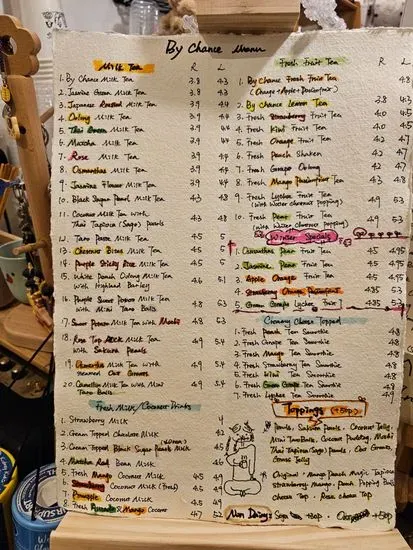 By Chance Menu
Milk Tea R L
1. By Chance Milk Tea 3.8 4.3
2. Jasmine Green Milk Tea 3.8 4.3
3. Japanese Roasted Milk Tea 3.9 4.4
4. Oolong Milk Tea 3.9 4.4
5. Thai Green Milk Tea 3.9 4.4
6. Matcha Milk Tea 3.9 4.4
7. Rose Milk Tea 3.9 4.4
8. Osmanthus Milk Tea 3.9 4.4
9. Jasmine Flower Milk Tea 3.9 4.4
10. Black Sugar Pearl Milk Tea 4.3
11. Coconut Milk Tea with 4.3 4.8
Thai Tapioca (Sago) Pearls
12. Taro Paste Milk Tea 4.5 5
13. Chestnut Bites Milk Tea 4.5 5
14. Purple Sticky Rice Milk Tea 4.5 5
15. White Peach Oolong Milk Tea 4.6 5.1
with Highland Barley
16. Purple Sweet Potato Milk Tea 4.8 5.3
with Mini Taro Balls
17. Sweet Potato Milk Tea with Mochi 4.8 5.3
18. Milk Tea 4.9 5.4
with Sakura Pearls
19. Milk Tea with 4.9 5.4
Oat Grains
20. Camellia Milk Tea with Mini 4.9 5.4
Taro Balls
Fresh Milk / Coconut Drinks
1. Strawberry Milk 4
2. Cream Topped Chocolate Milk 4.2
3. Cream Topped Black Sugar Pearls Milk
4. Matcha Red Bean Milk
5. Fresh Mango Coconut Milk 4.5 4.9
6. Strawberry Coconut Milk (Fresh) 4.5 4.9
7. Pineapple Coconut Milk 4.5 4.9
8. Fresh & Mango Coconut 4.7 5.2
Fresh Fruit Tea R L
1. By Chance Fresh Fruit Tea 4.8
(Orange+Apple+Passionfruit)
2. By Chance Lemon Tea 3.8
3. Fresh Strawberry Fruit Tea 4.0 4.5
4. Fresh Kiwi Fruit Tea 4.0 4.5
5. Fresh Orange Fruit Tea 4.2 4.7
6. Fresh Peach Shaken 4.2 4.7
7. Fresh Grape Oolong 4.2 4.7
8. Fresh Mango Passionfruit Tea 4.3 4.8
9. Fresh Lychee Fruit Tea 4.9 5.3
(with Water chestnut popping)
10. Fresh Pear Fruit Tea 4.9 5.3
(with Water chestnut popping)
Winter Specials
1. Osmanthus Pear Fruit Tea 4.5 4.95
2. Jasmine Pear Fruit Tea 4.5 4.95
3. Apple Orange Fruit Tea 4.5 4.95
4. Strawberry Orange Passionfruit 4.85 5.3
5. Green Grape Lychee Fruit 4.85 5.3
Creamy Cheese Topped
1. Fresh Peach Tea Smoothie
2. Fresh Grape Tea Smoothie
3. Fresh Mango Tea Smoothie
4. Fresh Strawberry Tea Smoothie
5. Fresh Kiwi Tea Smoothie
6. Fresh Green Grape Tea Smoothie
7. Fresh Lychee Tea Smoothie
Toppings (+80p)
Pearls, Sakura Pearls, Coconut Jelly,
Mini Taro Balls, Coconut Pudding, Mochi
Thai Tapioca (Sago) Pearls, Oat Grains,
Jelly
Original, Mango Peach Magic Tapioca
Strawberry, Mango, Peach Popping Balls
Cheese Top
Non Dairy: Soya +30p, Oat +50p